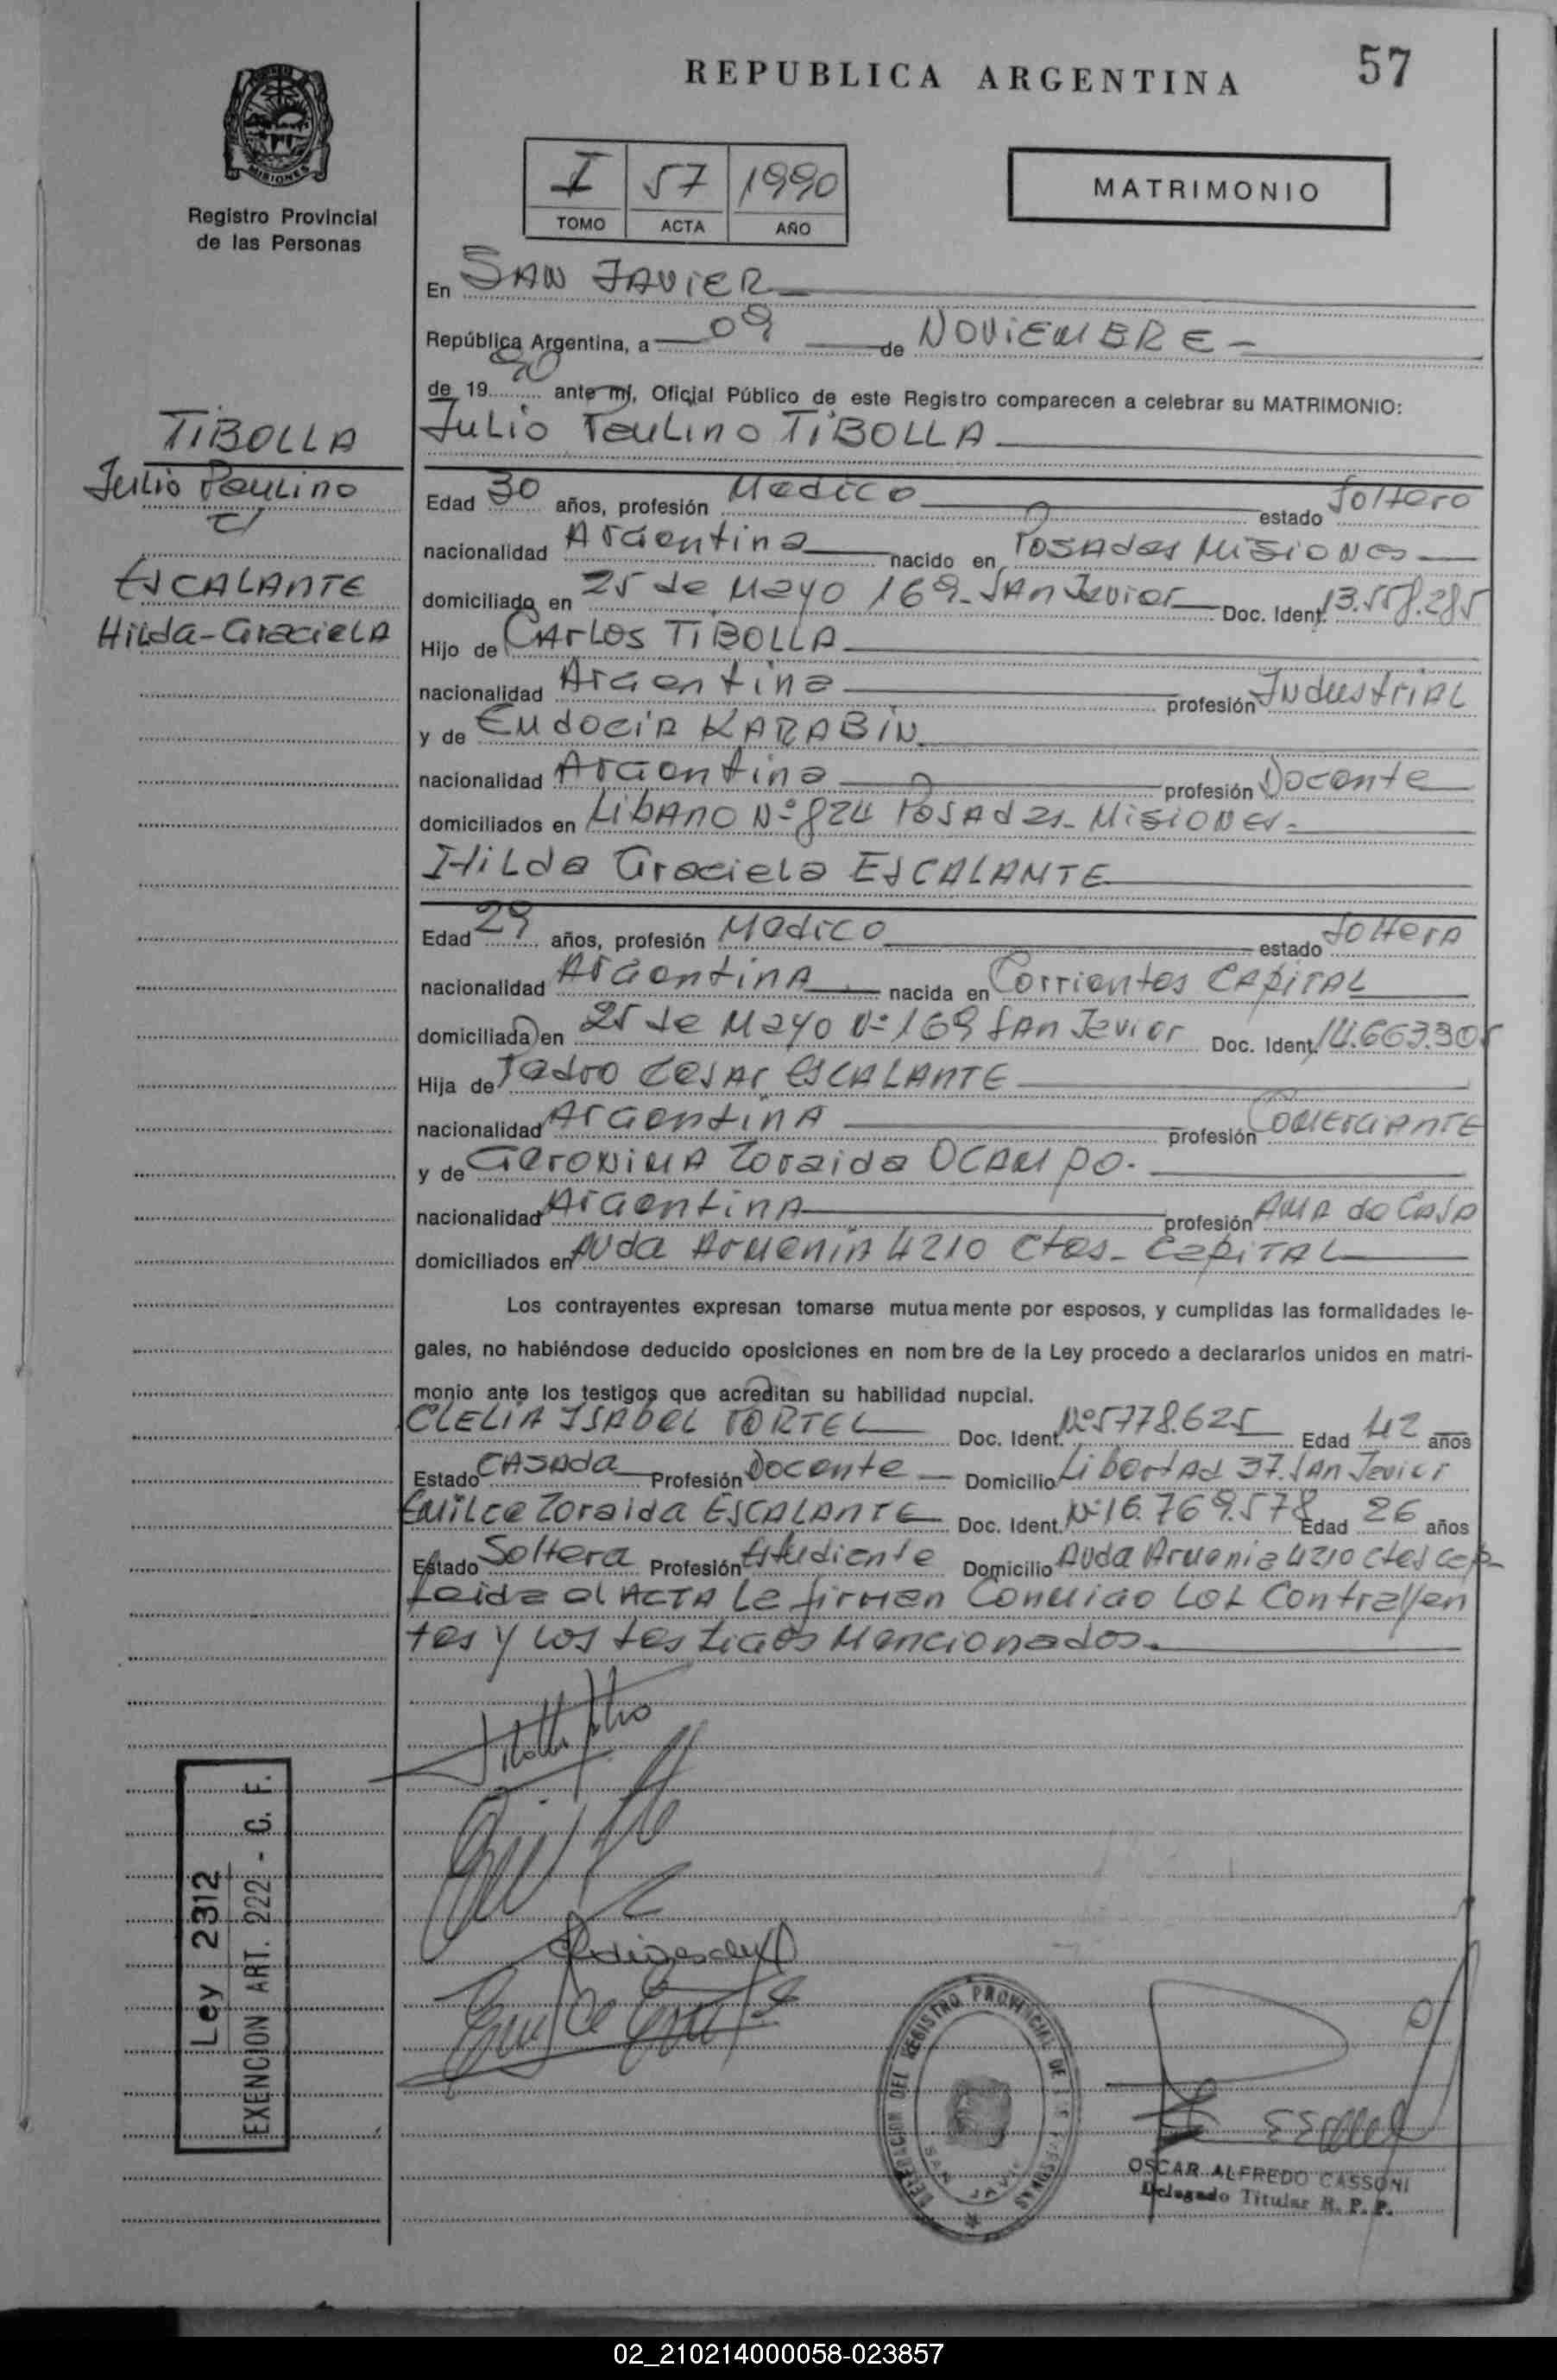 REPUBLICA ARGENTINA
57
MISIONES
Registro Provincial
de las Personas
I 57 1990
TOMO ACTA AÑO
MATRIMONIO
En SAN JAVIER
República Argentina, a 09 de NOVIEMBRE
de 1990 ante mí, Oficial Público de este Registro comparecen a celebrar su MATRIMONIO:
Julio Paulino TIBOLLA
TIBOLLA
Julio Paulino
c/
ESCALANTE
Hilda-Graciela
Edad 30 años, profesión Medico estado Soltero
nacionalidad Argentina nacido en Posadas Misiones
domiciliado en 25 de Mayo 169-San Javier Doc. Ident. 13.558.285
Hijo de Carlos TIBOLLA
nacionalidad Argentina profesión Industrial
y de Eudocia KARABIN
nacionalidad Argentina profesión Docente
domiciliados en Libano Nº 824 Posadas-Misiones-
Hilda Graciela ESCALANTE
Edad 29 años, profesión Medico estado Soltera
nacionalidad Argentina nacida en Corrientes CAPITAL
domiciliada en 25 de Mayo Nº 169 San Javier Doc. Ident. 14.663.905
Hija de Pedro Cesar ESCALANTE
nacionalidad Argentina profesión COMERCIANTE
y de Geronima Zoraida OCAMPO.
nacionalidad Argentina profesión Ama de Casa
domiciliados en Avda Armenia 4210 Ctes- CAPITAL
Los contrayentes expresan tomarse mutuamente por esposos, y cumplidas las formalidades le-
gales, no habiéndose deducido oposiciones en nombre de la Ley procedo a declararlos unidos en matri-
monio ante los testigos que acreditan su habilidad nupcial.
CLELIA ISABEL TORTEL Doc. Ident. Nº 5778.625 Edad 42 años
Estado Casada Profesión Docente Domicilio Libertad 37. San Javier
Emilce Zoraida ESCALANTE Doc. Ident. Nº 16.769.578 Edad 26 años
Estado Soltera Profesión Estudiante Domicilio Avda Armenia 4210 Ctes Cap
Leida el ACTA la firman Conmigo Los Contrayen
tes y los testigos Mencionados.
Ley 2312
EXENCION ART. 222 - C. F.
DELEGACION DEL REGISTRO PROVINCIAL DE LAS PERSONAS
SAN JAVIER
OSCAR ALFREDO CASSONI
Delegado Titular R. P. P.
02_210214000058-023857